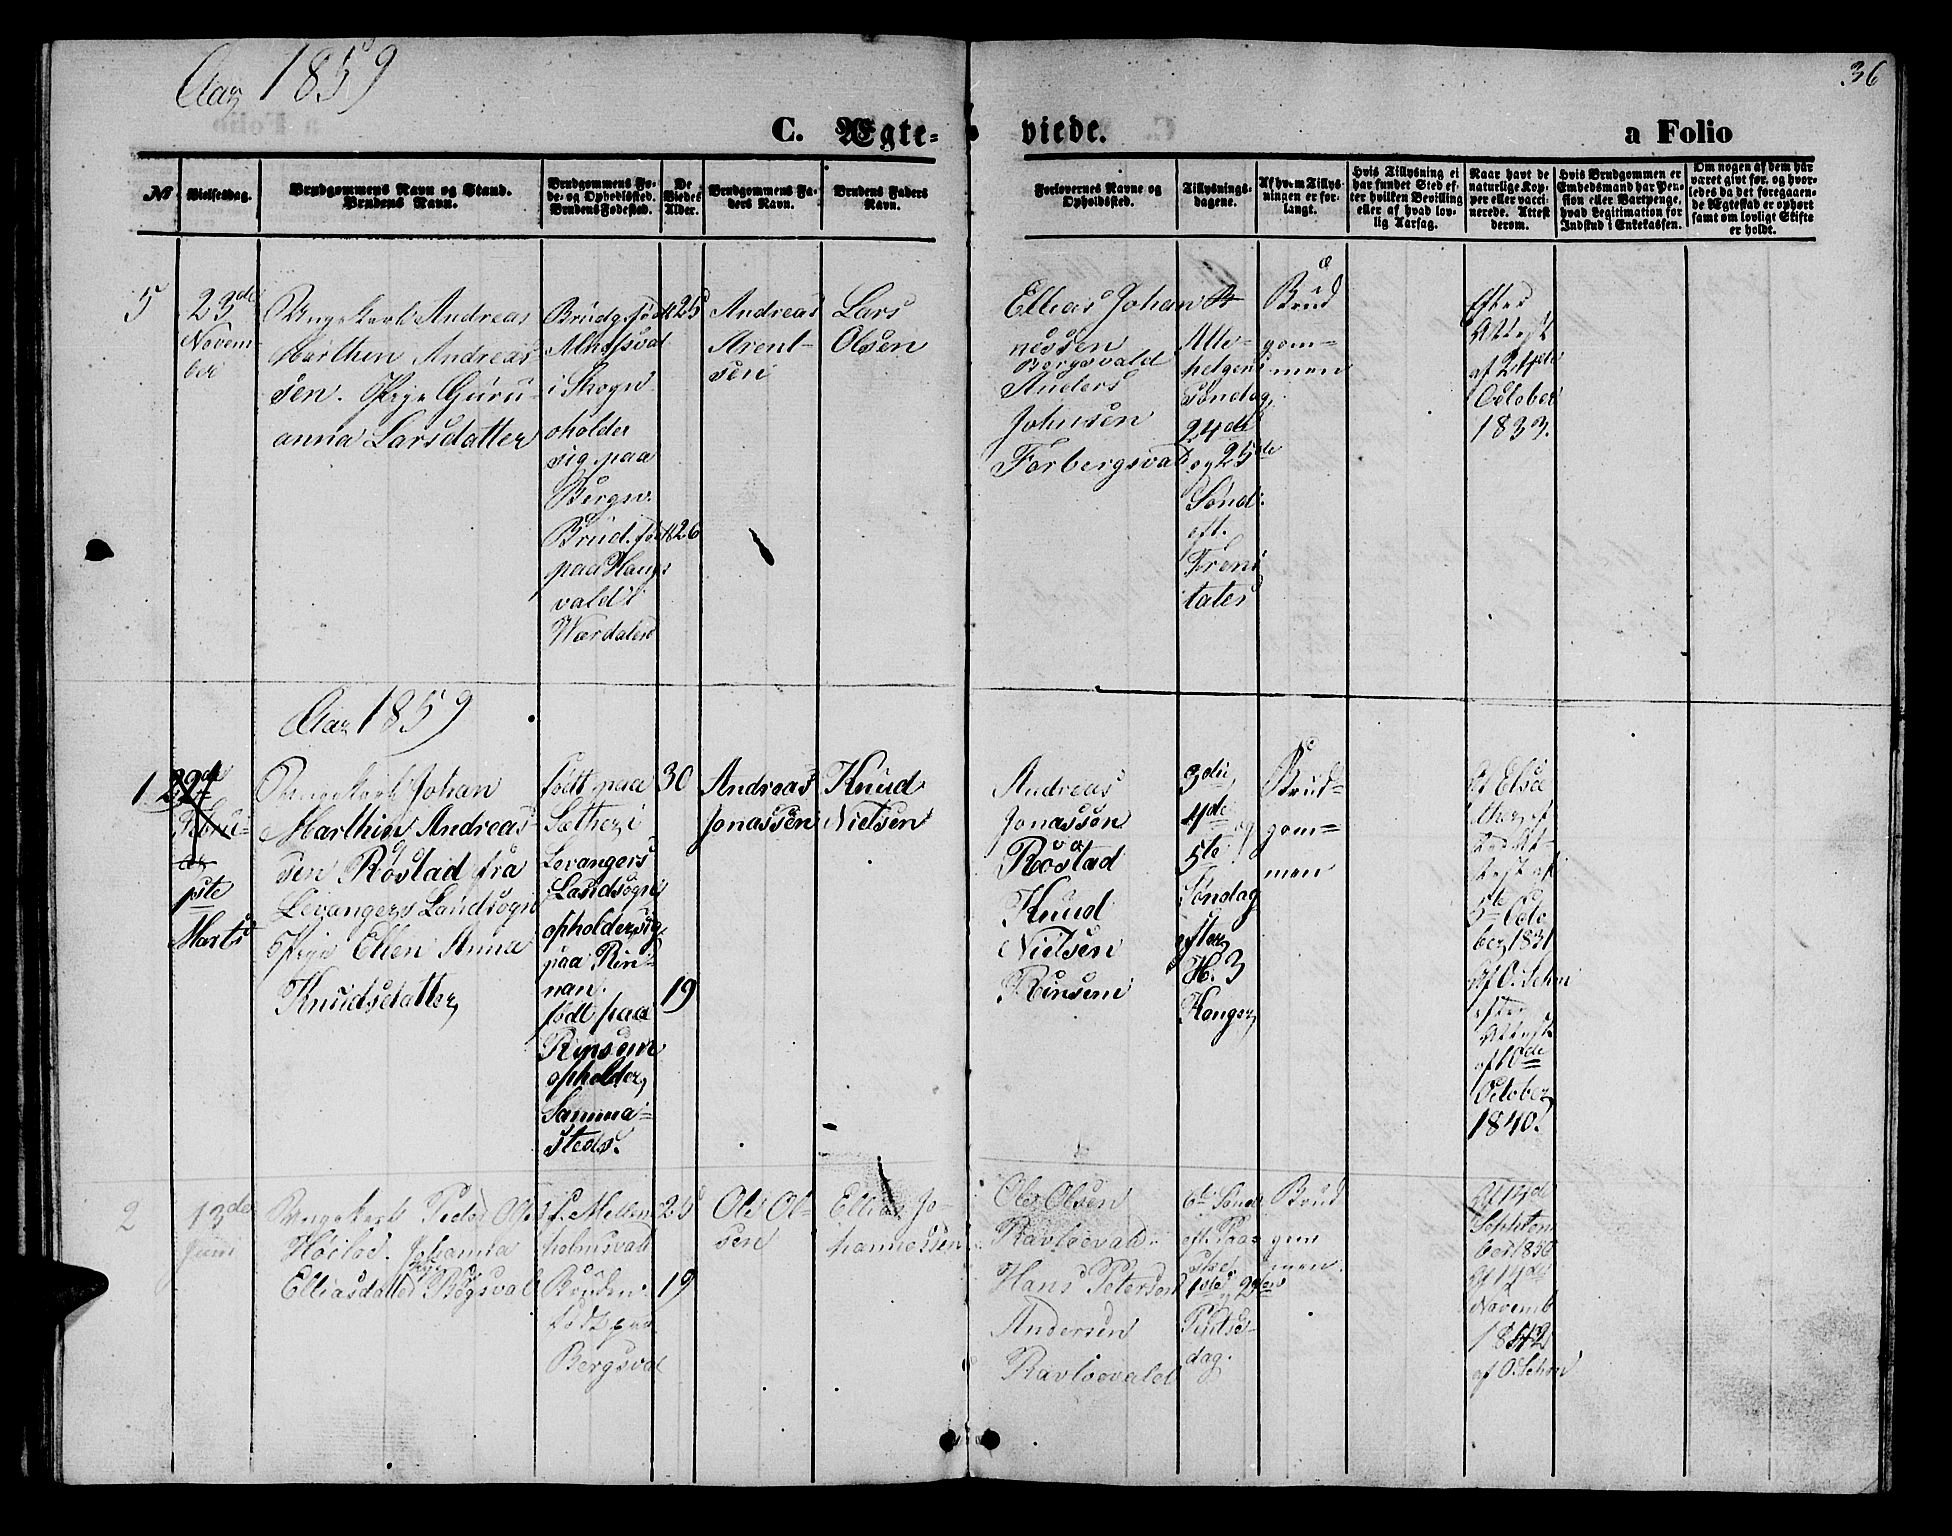 Aar 1859
36
C. Ægte-
viede.
a Folio
No
Vielsesdag.
Brudgommens Navn og Stand.
Brudens Navn.
Brudgommens Fo-
de- og Opholdssted.
Brudens Fødested.
De
Viedes
Alder.
Brudgommens Fa-
ders Navn.
Brudens Faders
Navn.
Forlovernes Navne og
Opholdssted.
Tillysnings-
dagene.
Af hvem Tillys-
ningen er for-
langt.
Hvis Tillysning ei
har fundet Sted ef-
ter hvilken Bevilling
eller af hvad lov-
lig Aarsag.
Naar havt de
naturlige Kop-
per eller vacci-
nerede. Attest
derom.
Hvis Brudgommen er
Embedsmand har Pen-
sion eller Vartpenge,
hvad Legitimation for
Indskud i Enkekassen.
Om nogen af dem har
været givt før, og hvor-
ledes da det foregaaen-
de Ægteskab er ophørt
samt om lovligt Skifte
er holdt.
5
23de
Novem-
ber
Ungekarl Andreas
Marthin Andreas
sen. Pige Guru-
anna Larsdatter
Brudg. fød
i Skogn
oholder
sig paa
Bergsv.
Brud. fød
paa Haugs
vald i
Værdalen
25
26
Andreas
Arent-
sen
Lars
Olsen
Ellias Johan
nessen
Bergsvald
Anders
Johnsen
Forbergsvald
Alle-
helgens
Søndag
24de
og 25de
Sønd.
eft.
Treni
tates
Brud
gom-
men
Efter
Attest
af 24de
October
1833.
Aar 1859
1
22de
Febru-
ar
1ste
Marts
Ungekarl Johan
Marthin Andreas
sen Røstad fra
Levangers Landsogn
Pige Ellen Anna
Knudsdatter
født paa
Sæther i
Levangers
Landsogn
opholder sig
paa Rin-
nan.
født paa
Rinsem
opholder
Samma-
steds.
30
19
Andreas
Jonassen
Knud
Nielsen
Andreas
Jonassen
Røstad
Knud
Nielsen
Rinsem
3die
4de og
5te
Søndag
efter
H. 3
Konger
Brud-
gom-
men
5te Octo
ber 1831
af O. Schon
efter
Attest
af 10de
October
1840.
2
13de
Juni
Ungekarl Peder Ols
Høilod. Johanna
Pige
Elliasdatter Bergsval
f. Mellem
holmsvald
Bruden
født paa
Bergsval
25
19
Ole Ol-
sen
Ellias Jo-
hannessen
Ole Olsen
Ravloevald
Hans Peterson
Andersen
Ravloevald
6te Sønd
eft. Paa
ske
1ste og 2den
Pintse-
dag.
Brud
gom
men.
Af 14de
Septem
ber 1836
Af 14de
Novemb
1842
af O. Schon